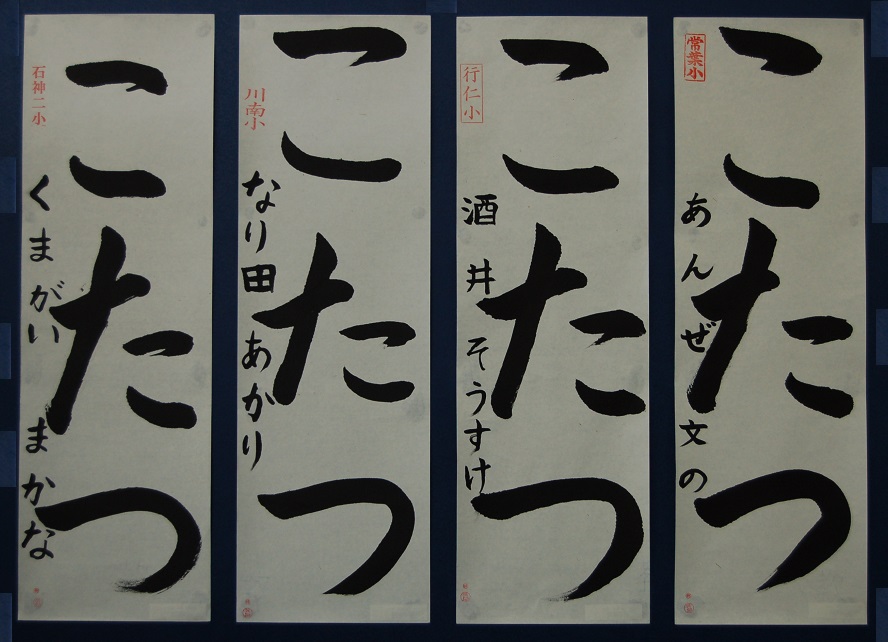 常葉小
こたつ
あんぜ文の
行仁小
こたつ
酒井そうすけ
川南小
こたつ
なり田あかり
石神二小
こたつ
くまがいまかな